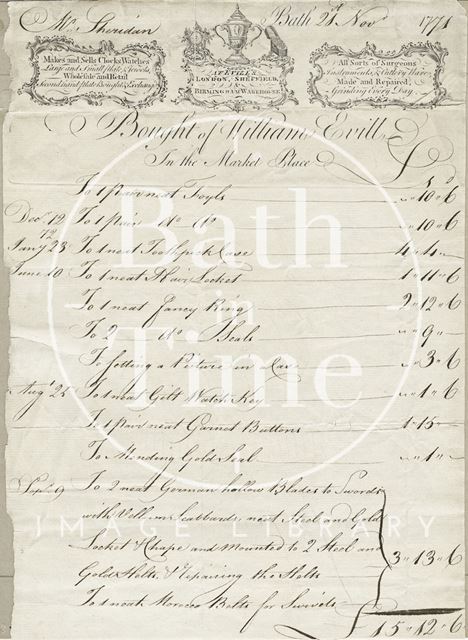 Mr. Sheridan
Bath 21st Novr 1771
Makes and Sells Clocks, Watches
Large and Small Plate & Jewels,
Wholesale and Retail
Second hand Plate Bought & Exchang'd
AT EVILL'S
LONDON, SHEFFIELD,
AND
BIRMINGHAM WAREHOUSE
All Sorts of Surgeons
Instruments, & Cutlery Ware,
Made and Repaired,
Grinding Every Day.
Bought of William Evill
In the Market Place
s d
To 1 pair neat Foyls " 10 " 6
Decr 19 To 1 pair do do " 10 " 6
72
Jany 23 To 1 neat Toothpick Case 4 " 4 "
June 10 To 1 neat Hair Locket 1 " 11 " 6
To 1 neat Fancy Ring 2 " 12 " 6
To 2 do Seals " 9 "
To fitting a Picture in a Case " 3 " 6
Augt 25 To 1 neat Gilt Watch Key " 1 " 6
To 1 pair neat Garnet Buttons 1 " 15 "
To Mending Gold Seal " 1 "
Sepr 9 To 2 neat German hollow Blades to Swords
with Vellum Scabbards, neat Steel and Gold
Locket & Chape and Mounted to 2 Steel and
Gold Hilts, & Repairing the Hilts
3 " 13 " 6
To 1 neat Morocco Belts for Swivels
15 " 12 " 6
Bath
in
Time
IMAGE LIBRARY